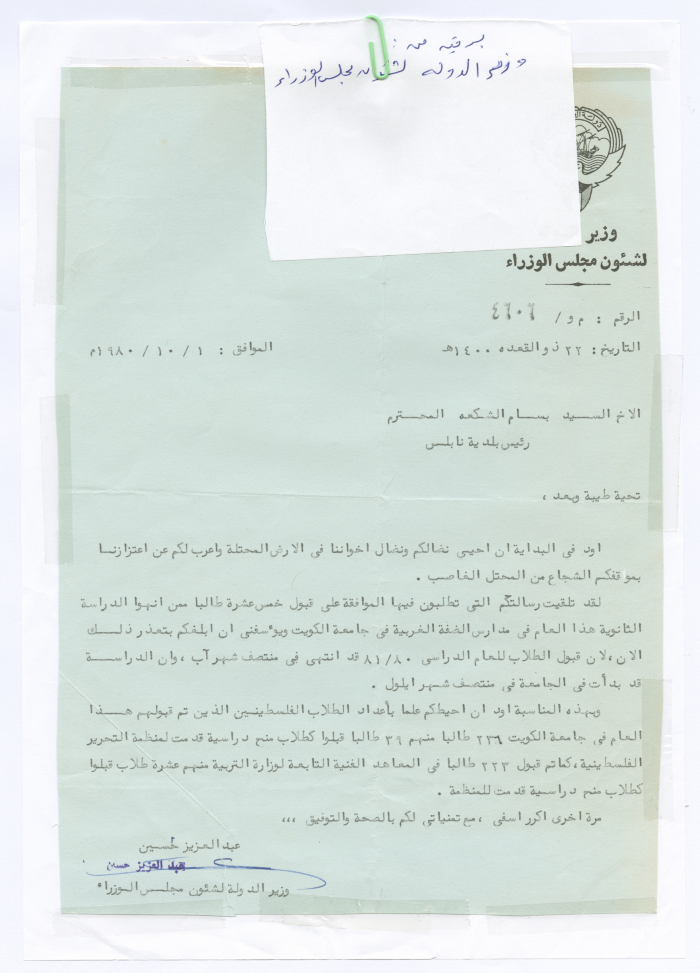 برقيه من :
وزير الدوله لشئون مجلس الوزراء
وزير
لشئون مجلس الوزراء
الرقم : م و / ٤٦٠٦
التاريخ : ٢٢ ذو القعده ١٤٠٠هـ الموافق : ١ / ١٠ / ١٩٨٠م
الاخ السيد بسام الشكعه المحترم
رئيس بلدية نابلس
تحية طيبة وبعد ،
اود في البداية ان احيي نضالكم ونضال اخواننا في الارض المحتلة واعرب لكم عن اعتزازنا
بموقفكم الشجاع من المحتل الغاصب .
لقد تلقيت رسالتكم التي تطلبون فيها الموافقة على قبول خمس عشرة طالبا ممن انهوا الدراسة
الثانوية هذا العام في مدارس الضفة الغربية في جامعة الكويت ويؤسفني ان ابلغكم بتعذر ذلك
الان ، لان قبول الطلاب للعام الدراسي ٨١/٨٠ قد انتهى في منتصف شهر آب ، وان الدراسة
قد بدأت في الجامعة في منتصف شهر ايلول .
وبهذه المناسبة اود ان احيطكم علما بأعداد الطلاب الفلسطينين الذين تم قبولهم هذا
العام في جامعة الكويت ٢٣٦ طالبا منهم ٣٩ طالبا قبلوا كطلاب منح دراسية قدمت لمنظمة التحرير
الفلسطينية ، كما تم قبول ٢٢٣ طالبا في المعاهد الفنية التابعة لوزارة التربية منهم عشرة طلاب قبلوا
كطلاب منح دراسية قدمت للمنظمة .
مرة اخرى اكرر اسفي ، مع تمنياتي لكم بالصحة والتوفيق ،،،
عبد العزيز حسين
عبد العزيز حسين
وزير الدولة لشئون مجلس الوزراء